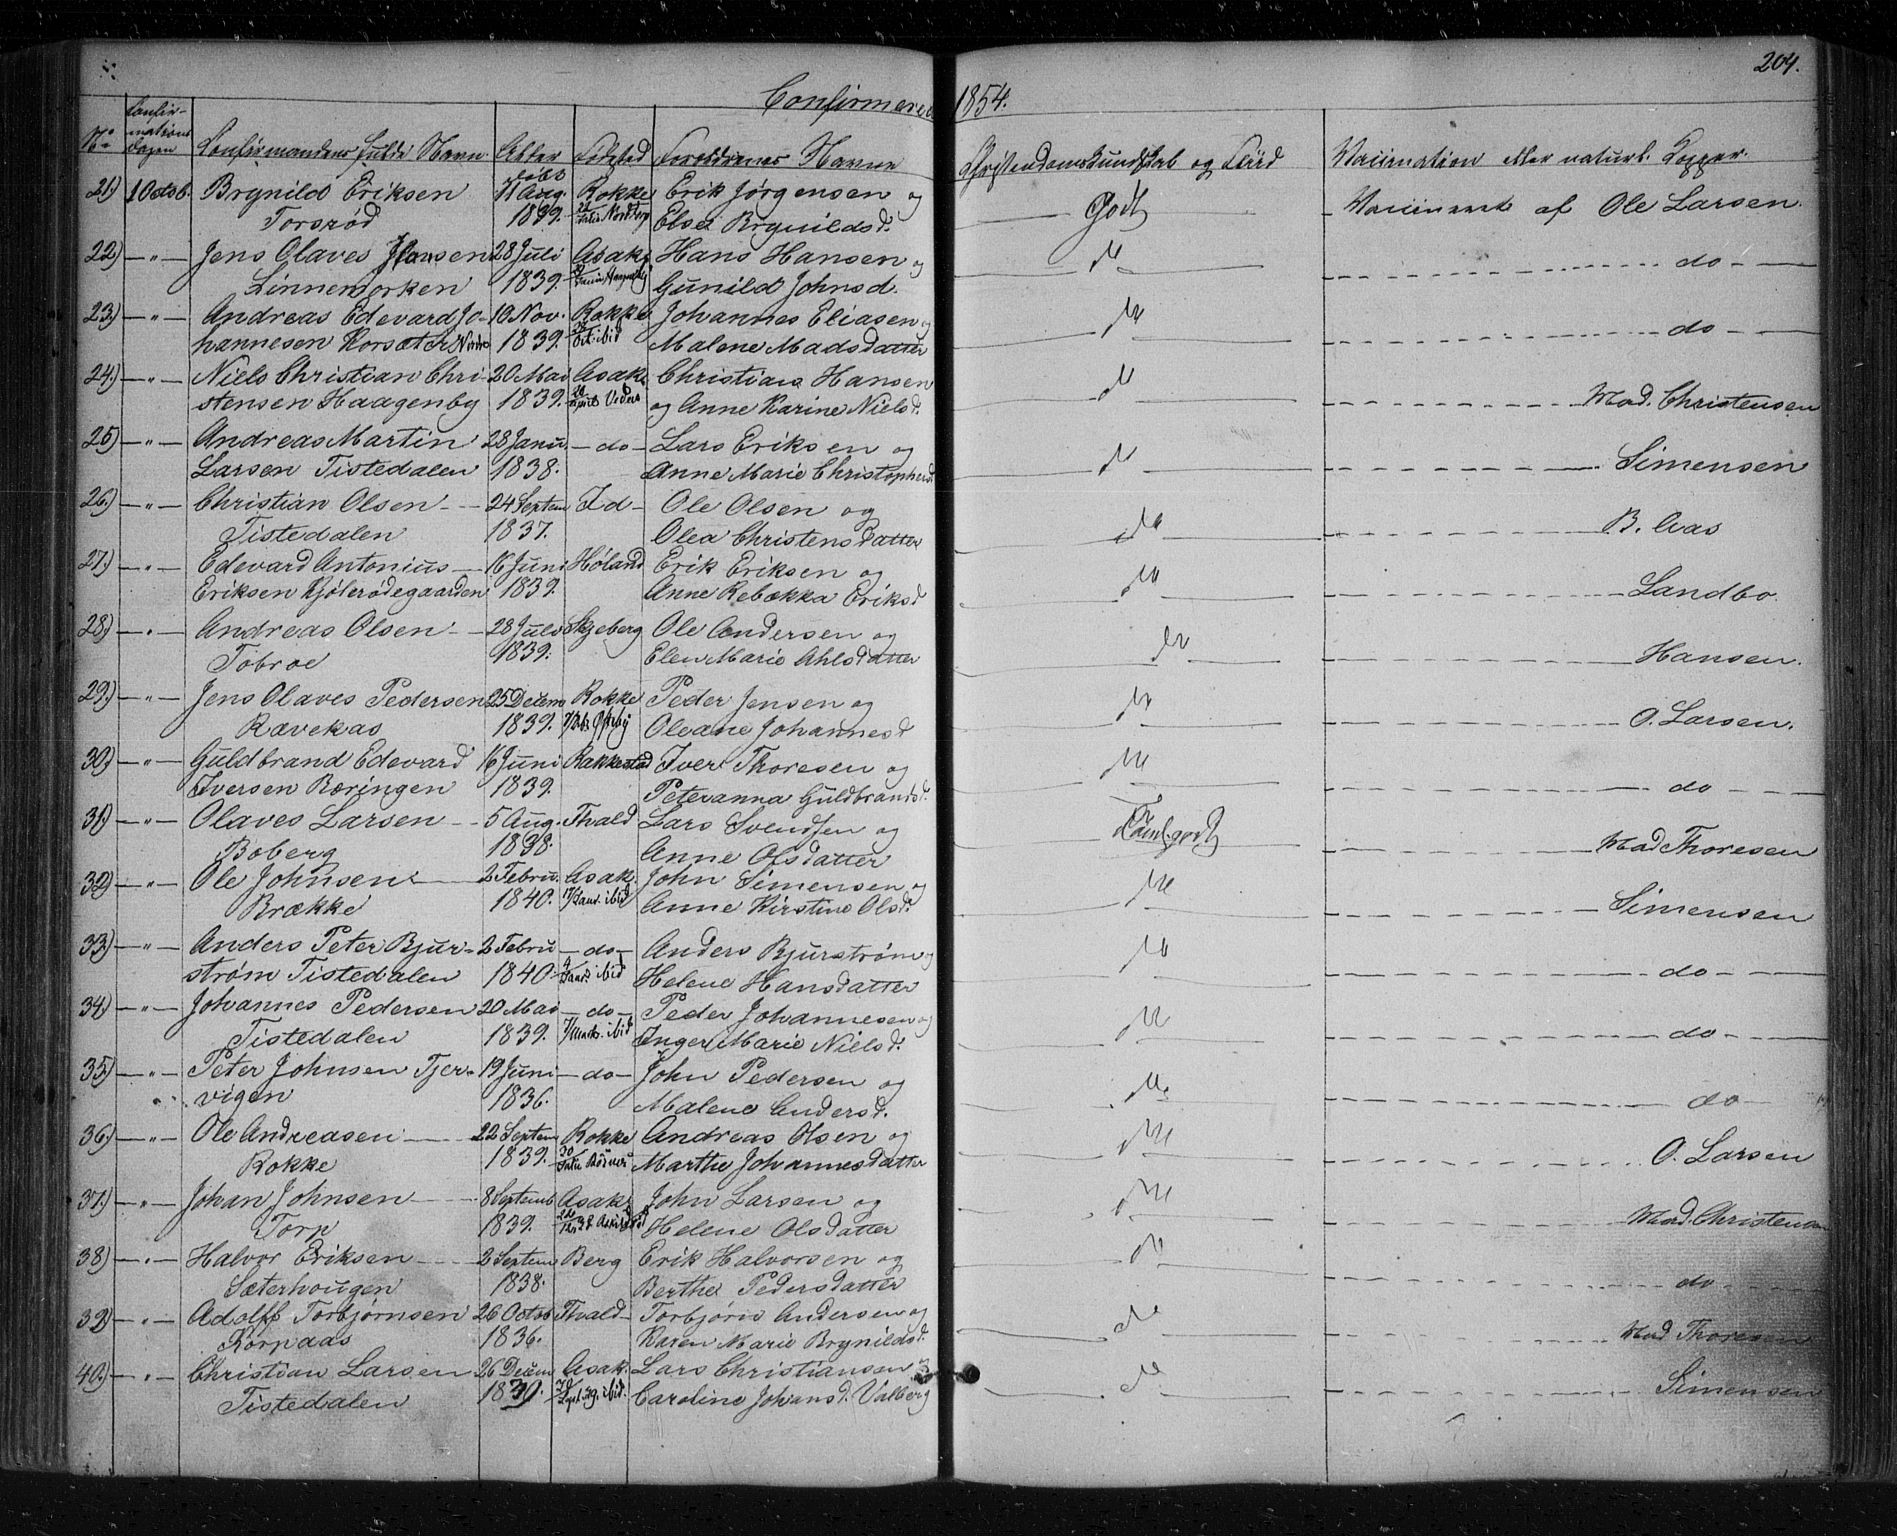 204.
Confirmerede 1854.
No Confirmations Dagen Confirmandens fulde Navn. Alder Fødested Forældrenes Navne Christendomskundskab og Flid Vaccination eller naturl. Kopper.
21) 1 Octob. Brynild Eriksen 11 Aug. Rokke Erik Jørgensen og Godt Vaccineret af Ole Larsen.
Torsrød 1839. Else Brynildsd.
22) — " — Jens Olaves Hansen 28 Juli Asak Hans Hansen og do do
Linnemørken 1839. Gunild Johnsd.
23) — " — Andreas Edevard Jo- 10 Nov. Rokke Johannes Eliasen og do do
hannesen Korsæter Nordre 1839. ibid Malene Madsdatter
24) — " — Niels Christian Chri- 20 Mai Asak Christian Hansen do Mad. Christensen
stensen Haagenby 1839. og Anne Karine Nielsd.
25) — " — Andreas Martin 28 Janu. — do — Lars Eriksen og do Simensen
Larsen Tistedalen 1838. Anne Marie Christophersd
26) — " — Christian Olsen 24 Septem Id Ole Olsen og do B.
Tistedalen 1837. Olea Christensdatter
27) — " — Edevard Antonius 16 Juni Høland Erik Eriksen og do Landbo.
Eriksen Kjølerødegaarden 1839. Anne Rebækka Eriksd
28) — " — Andreas Olsen 28 Juli Skjeberg Ole Andersen og do Hansen.
Tobroe 1839. Elen Marie Ahlsdatter
29) — " — Jens Olaves Pedersen 25 Decem Rokke Peder Jensen og do O. Larsen.
Rævekas 1839. Oleane Johannesd
30) — " — Guldbrand Edevard 16 Juni Rakkestad Iver Thoresen og do do
Iversen Bæringen 1839. Peteranna Guldbrandsd.
31) — " — Olaves Larsen 5 Aug. Thvald Lars Svendsen og Teml. godt Mad Thoresen
Boberg 1838. Anne Olsdatter
32) — " — Ole Johnsen 2 Febru. Asak. John Simensen og do Simensen
Brække 1840. ibid Anne Kirstine Olsd.
33) — " — Anders Peter Bjur- 2 Febru — do — Anders Bjurstrøm og do do
strøm Tistedalen 1840. ibid Helene Hansdatter
34) — " — Johannes Pedersen 20 Mai — do — Peder Johannesen og do do
Tistedalen 1839. ibid Inger Marie Nielsd.
35) — " — Peter Johnsen Tjer- 19 Juni — do — John Pedersen og do do
vigen 1836. Malene Andersd.
36) — " — Ole Andreasen 22 Septem Rokke Andreas Olsen og do O. Larsen
Rokke 1839. Marthe Johannesdatter
37) — " — Johan Johnsen 8 Septemb Asak John Larsen og do Mad. Christensen
Torp 1839. Helene Olsdatter
38) — " — Halvor Eriksen 2 Septem Berg Erik Halvorsen og do do
Sæterhougen 1838. Berthe Pedersdatter
39) — " — Adolff Torbjørnsen 26 Octob Thvald Torbjørn Andersen og do Mad Thoresen
Kornaas 1836. Karen Marie Brynildsd.
40) — " — Christian Larsen 26 Decem Asak. Lars Christiansen og do Simensen
Tistedalen 1839. ibid. Caroline Johansd. Valberg